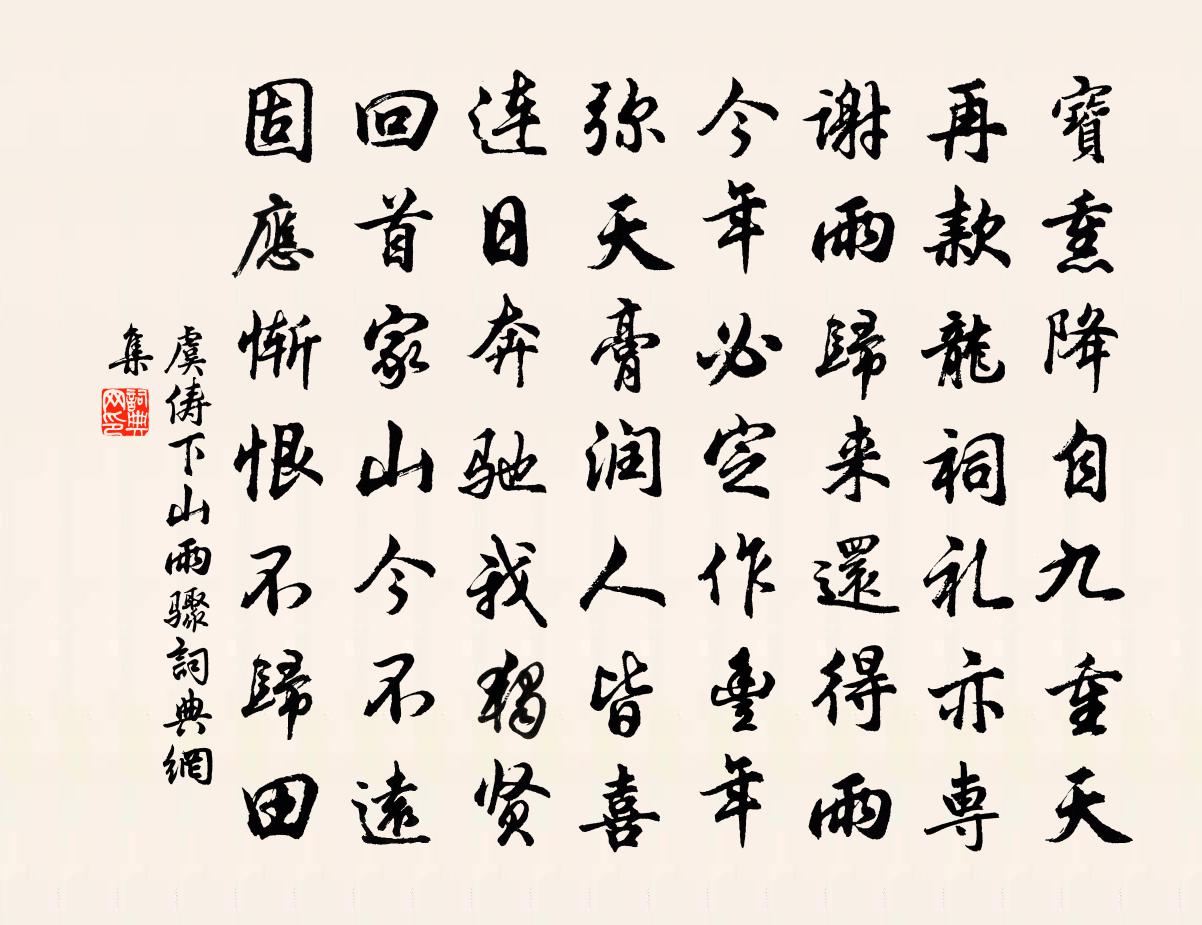 寶熏降自九重天
再款龍祠礼亦専
謝雨歸来還得雨
今年必定作豊年
弥天膏润人皆喜
連日奔驰我獨贤
回首家山今不遠
固應慚恨不歸田
虞儔下山雨骤詞典網
集
詞典
网印